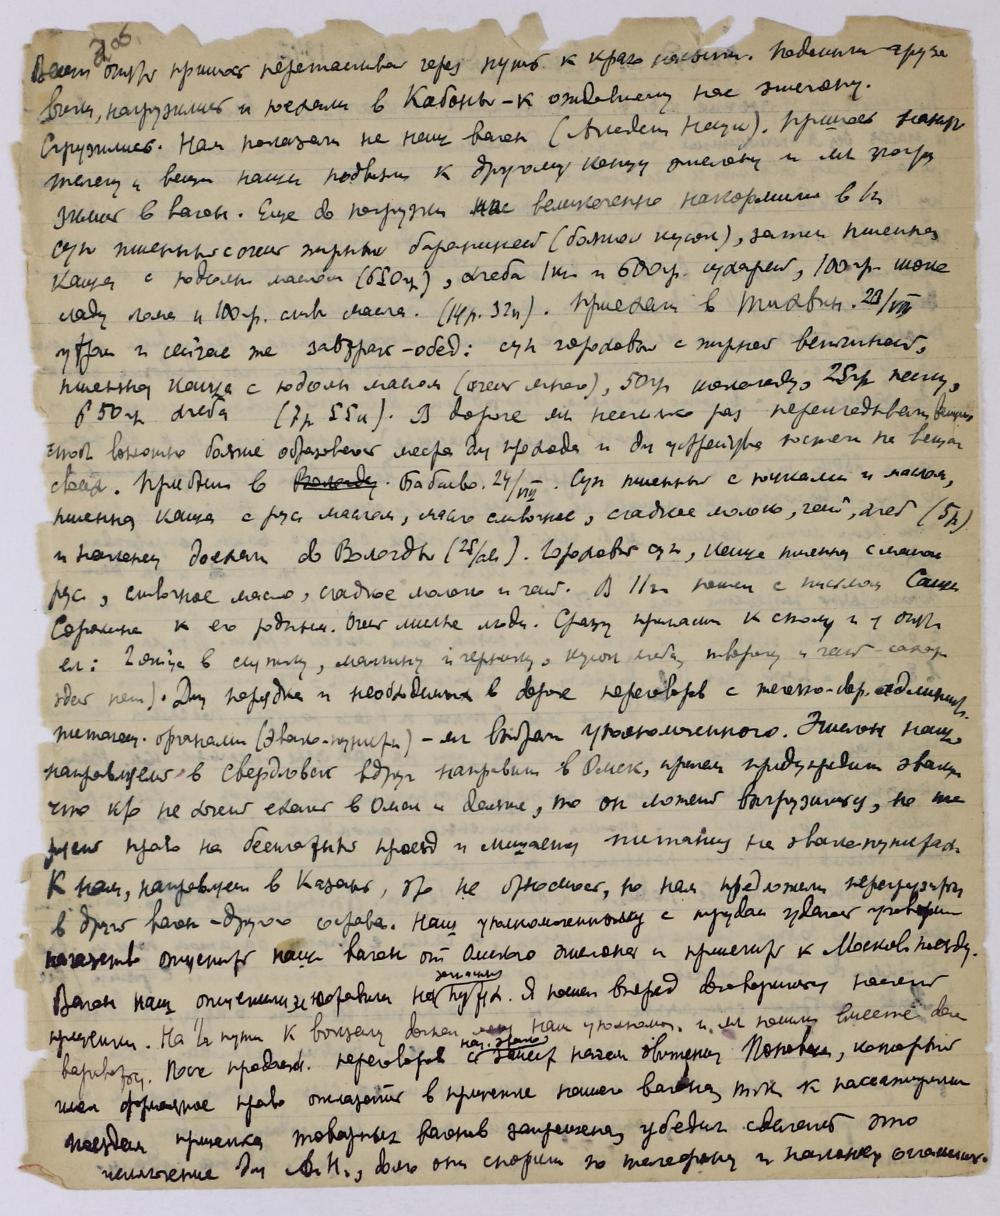 306
Вещи опять пришлось перетаскивать через путь к краю насыпи. Подошли грузо
вики, нагрузились и поехали в Кабоны – к ожидавшему нас эшелону.
Сгрузились. Нам показали не наш вагон (Академии Наук). Пришлось
вещи наши подвезли к другому концу эшелона и мы погру
зились в вагон. Еще до погрузки нас великолепно накормили
суп пшенный с очень жирной бараниной (большой кусок), затем пшенная
каша с маслом (650гр), хлеба 1кг и 600гр. сухарей, 100гр. шоко
лада лома и 100гр. слив масла. (14р. 32к). Приехали в Тихвин. 23/VIII
утром и сейчас же завтрак-обед: суп гороховый с жирной ветчиной,
пшенная каша с маслом (очень много), 50гр шоколаду, 25гр
650гр хлеба (7р 55к). В дороге мы несколько раз перекладывали вещи
чтоб возможно больше образовалось места для прохода и для устройства постели на вещах
своей. Прибыли в Вологду. Бабаево. 24/VIII. Суп пшенный с и маслом,
пшенная каша с рус маслом, масло сливочное, сладкое молоко, чай, хлеб (5р)
и наконец доехали до Вологды (25/VIII). Гороховый суп, каша пшенная с маслом
рус, сливочное масло, сладкое молоко и чай. В 11ч пошел с письмом Саши
Сорокина к его родным. Очень милые люди. Сразу пригласили к столу и я опять
ел: 2 яйца в смятку, малину и чернику, кусок хлеба, творогу и чай – сахару
здесь нет). Для порядка и необходимых в дороге переговоров с железно-дор. администр.
питател. органами (Эвако-пункты) – мы выбрали уполномоченного. Эшелон наш,
направляемый в Свердловск вдруг направили в Омск, причем предупредили эвакуир
что кто не хочет ехать в Омск и дальше, то он может выгрузиться, но те
ряет право на бесплатный проезд и питание на эвакопунктах.
К нам, направляемым в Казань, это не относится, но нам предложили перегрузиться
в другой вагон – другого состава. Наш уполномоченному с трудом удалось уговорить
начальство отцепить наш вагон от Омского эшелона и прицепить к Московс. поезду.
Вагон наш отцепили и отправили на запасный путь. Я пошел вперед договориться насчет
прицепки. На ½ пути к вокзалу догнал меня наш уполномоч. и мы пошли вместе дого
вариваться. После продолж. переговоров с нач. эвако замест начал движения Поповым, который
имел формальное право отказать в прицепке нашего вагона, т.к. к пассажирским
поездам прицепка товарных вагонов запрещена, убедил сделать это
исключение для А.Н., долго они спорили по телефону и наконец согласились.